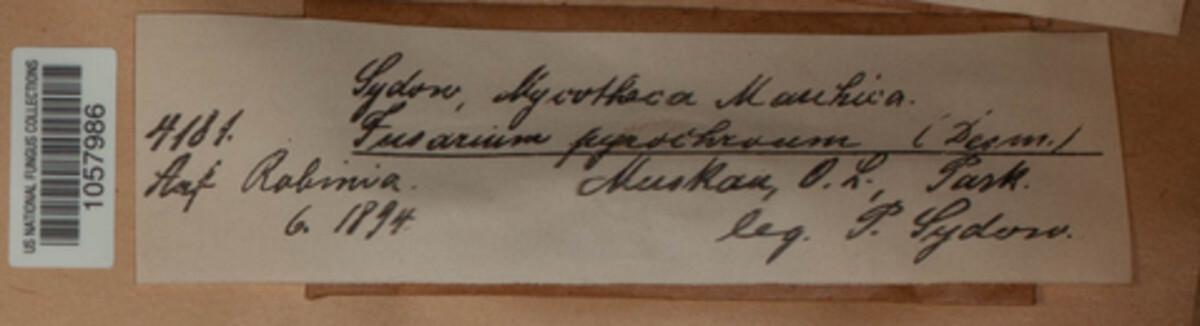 US NATIONAL FUNGUS COLLECTIONS
1057986
Sydow, Mycotheca Marchica.
4181. Fusarium pyrochroum (Desm.)
Auf Robinia. Muskau, O. L., Park.
6. 1894. leg. P. Sydow.